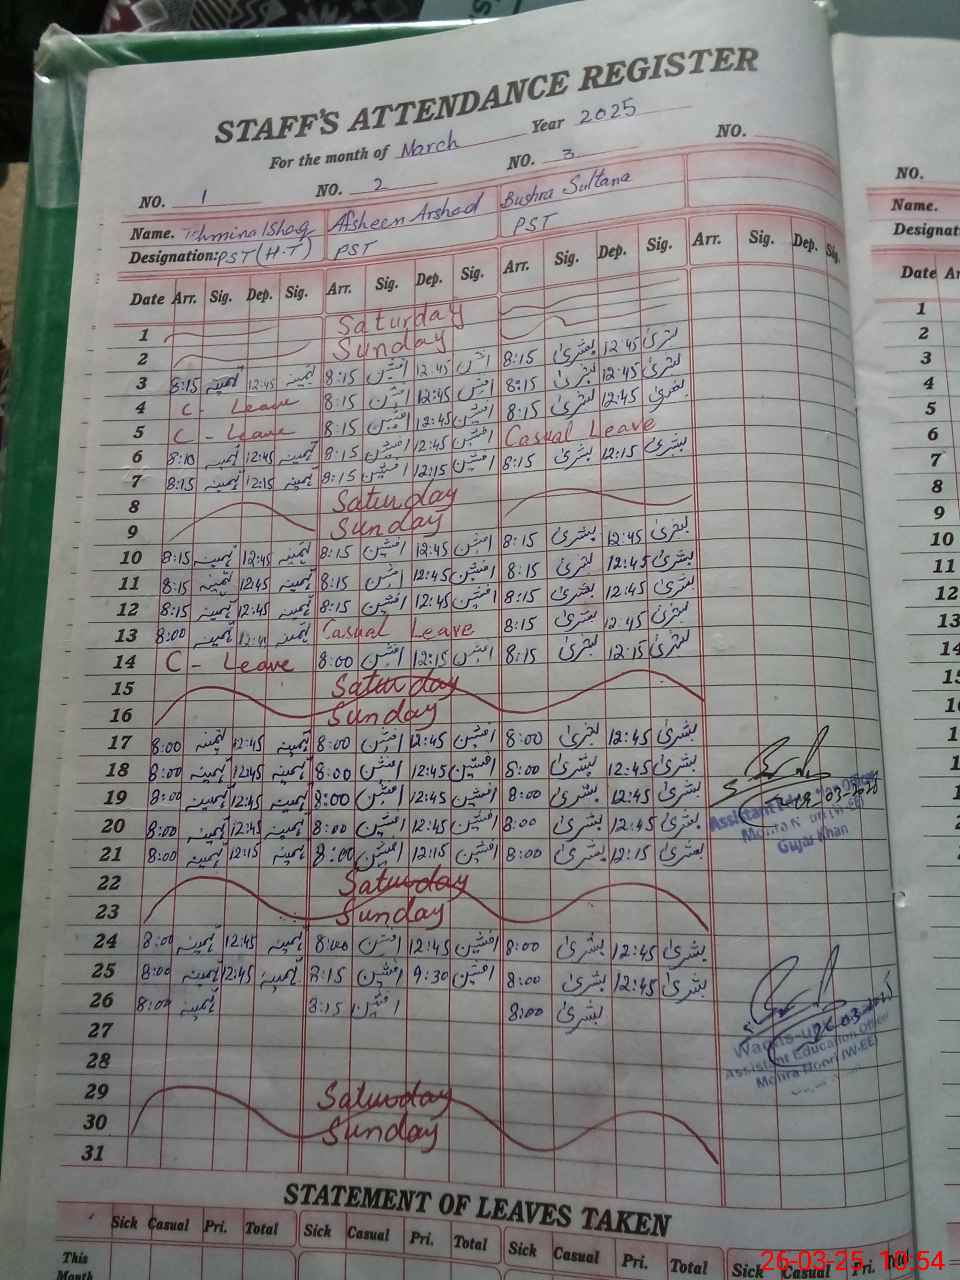 STAFF'S ATTENDANCE REGISTER
For the month of March Year 2025
NO. 1 NO. 2 NO. 3 NO.
Name. Tehmina Ishaq Afsheen Arshad Bushra Sultana
Designation: PST (H.T) PST PST
Date Arr. Sig. Dep. Sig. Arr. Sig. Dep. Sig. Arr. Sig. Dep. Sig. Arr. Sig. Dep. Sig.
1 Saturday
2 Sunday
3 8:15 تہمینہ 12:45 تہمینہ 8:15 افشین 12:45 افشین 8:15 بشریٰ 12:45 بشریٰ
4 C - Leave 8:15 افشین 12:45 افشین 8:15 بشریٰ 12:45 بشریٰ
5 C - Leave 8:15 افشین 12:45 افشین 8:15 بشریٰ 12:45 بشریٰ
6 8:10 تہمینہ 12:45 تہمینہ 8:15 افشین 12:45 افشین Casual Leave
7 8:15 تہمینہ 12:15 تہمینہ 8:15 افشین 12:15 افشین 8:15 بشریٰ 12:15 بشریٰ
8 Saturday
9 Sunday
10 8:15 تہمینہ 12:45 تہمینہ 8:15 افشین 12:45 افشین 8:15 بشریٰ 12:45 بشریٰ
11 8:15 تہمینہ 12:45 تہمینہ 8:15 افشین 12:45 افشین 8:15 بشریٰ 12:45 بشریٰ
12 8:15 تہمینہ 12:45 تہمینہ 8:15 افشین 12:45 افشین 8:15 بشریٰ 12:45 بشریٰ
13 8:00 تہمینہ تہمینہ Casual Leave 8:15 بشریٰ 12:45 بشریٰ
14 C - Leave 8:00 افشین 12:15 افشین 8:15 بشریٰ 12:15 بشریٰ
15 Saturday
16 Sunday
17 8:00 تہمینہ 12:45 تہمینہ 8:00 افشین 12:45 افشین 8:00 بشریٰ 12:45 بشریٰ
18 8:00 تہمینہ 12:45 تہمینہ 8:00 افشین 12:45 افشین 8:00 بشریٰ 12:45 بشریٰ
19 8:00 تہمینہ 12:45 تہمینہ 8:00 افشین 12:45 افشین 8:00 بشریٰ 12:45 بشریٰ
20 8:00 تہمینہ 12:45 تہمینہ 8:00 افشین 12:45 افشین 8:00 بشریٰ 12:45 بشریٰ
21 8:00 تہمینہ 12:15 تہمینہ 8:00 افشین 12:15 افشین 8:00 بشریٰ 12:15 بشریٰ
Assistant Education Officer
Gujar Khan
22 Saturday
23 Sunday
24 8:00 تہمینہ 12:45 تہمینہ 8:00 افشین 12:45 افشین 8:00 بشریٰ 12:45 بشریٰ
25 8:00 تہمینہ 12:45 تہمینہ 8:15 افشین 9:30 افشین 8:00 بشریٰ 12:45 بشریٰ
26 8:00 تہمینہ 8:15 افشین 8:00 بشریٰ
26-03-2025
Assistant Education Officer
Mohra Noori (W-EE)
27
28
29 Saturday
30 Sunday
31
STATEMENT OF LEAVES TAKEN
Sick Casual Pri. Total Sick Casual Pri. Total Sick Casual Pri. Total Sick Casual Pri.
This
Month
NO.
Name.
Date
1
2
3
4
5
6
7
8
9
10
11
12
13
14
26-03-25, 10:54